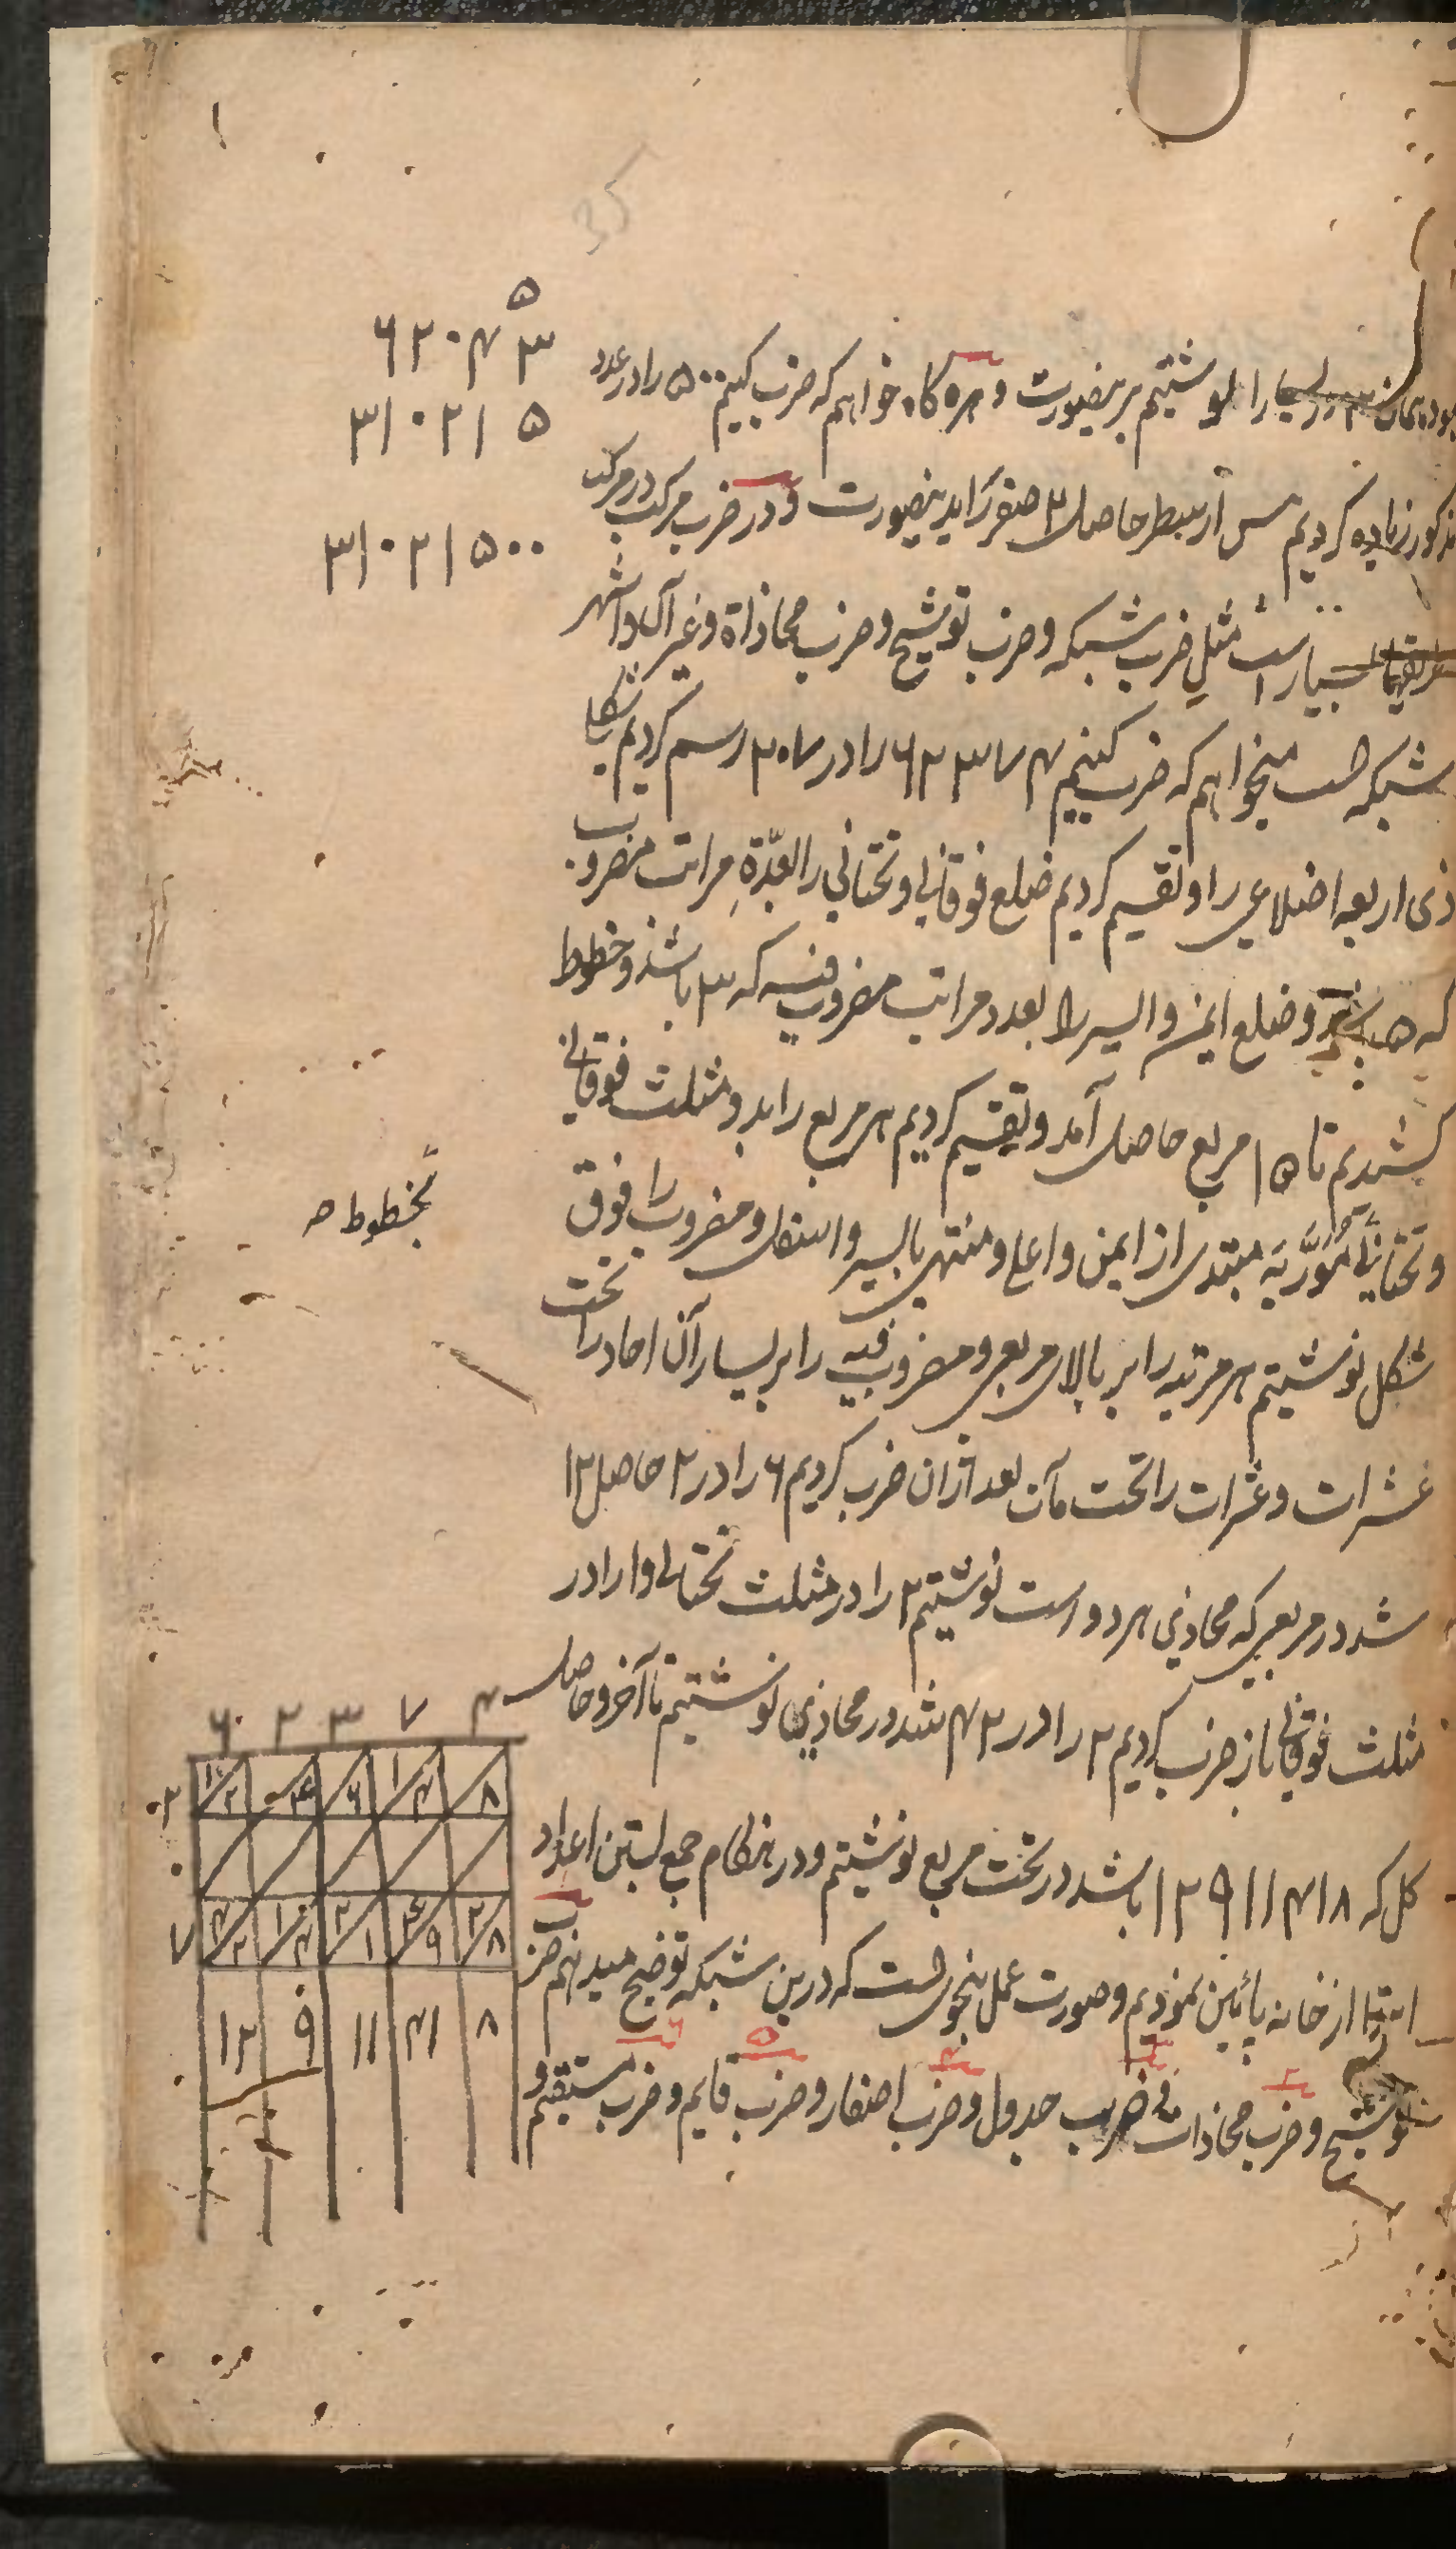 35
۵
۶۲۰۴۳
۳۱۰۲۱۵
۳۱۰۲۱۵۰۰
بوده همان ۳ در یسار را نوشتیم برینصورت و هرگاه خواهیم که ضرب کنیم ۵۰۰ را در عدد
مذکور زیاده کردیم پس از سطر حاصل ۲ صفر زاید بدینصورت و در ضرب مرکب در مرکب
طریقها بسیار است مثل ضرب شبکه و ضرب توشیح و ضرب محاذاة و غیر آن و اشهر
شبکه است میخواهیم که ضرب کنیم ۶۲۳۷۴ را در ۲۰۷ رسم کردیم شکل
ذی اربعه اضلاعی را و تقسیم کردیم ضلع فوقانی و تحتانی را بعدّة مراتب مضروب
که ۵ باشد و ضلع ایمن و ایسر را بعدد مراتب مضروب فیه که ۳ باشد و خطوط
کشیدیم تا ۱۵ مربع حاصل آمد و تقسیم کردیم هر مربع را بدو مثلث فوقانی
و تحتانی مورّبه مبتدی از ایمن و اعلی و منتهی بایسر و اسفل و مضروب را فوق
بخطوط صح
شکل نوشتیم هر مرتبه را بر بالای مربعی و مضروب فیه را بر یسار آن احاد را تحت
عشرات و عشرات را تحت مآت بعد ازان ضرب کردیم ۶ را در ۲ حاصل ۱۲
شد در مربعی که محاذی هر دو است نوشتیم ۲ را در مثلث تحتانی و ۱ را در
مثلث فوقانی باز ضرب کردیم ۲ را در ۲ ۴ شد در محاذی نوشتیم تا آخر و حاصل
کل که ۱۲۹۱۱۴۱۸ باشد در تحت مربع نوشتیم و در هنگام جمع بستن اعداد
ابتدا از خانه پائین نمودیم و صورت عمل بنحویست که درین شبکه توضیح میدهم ضرب
توشیح و ضرب محاذات و ضرب جدول و ضرب اصفار و ضرب قایم و ضرب مستقیم و
۶ ۲ ۳ ۷ ۴
۲ ۱ ۲ ۴ ۶ ۱ ۴ ۸
۰
۷ ۴ ۲ ۱ ۴ ۲ ۱ ۴ ۹ ۲ ۸
۱۲ ۹ ۱۱ ۴۱ ۸